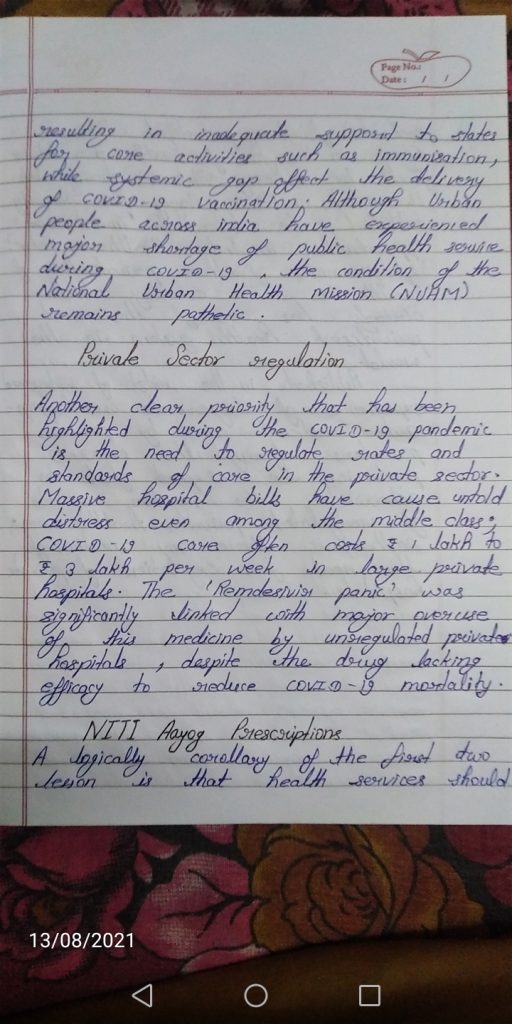 Page No.:
Date: / /
resulting in inadequate support to states
for core activities such as immunisation,
while systemic gap affect the delivery
of COVID-19 vaccination. Although Urban
people across india have experienced
major shortage of public health service
during COVID-19, the condition of the
National Urban Health Mission (NUHM)
remains pathetic.
Private Sector regulation
Another clear priority that has been
highlighted during the COVID-19 pandemic
is the need to regulate rates and
standards of care in the private sector.
Massive hospital bills have cause untold
distress even among the middle class;
COVID-19 care often costs ₹ 1 lakh to
₹ 3 lakh per week in large private
hospitals. The 'Remdesivir panic' was
significantly linked with major overuse
of this medicine by unregulated private
hospitals, despite the drug lacking
efficacy to reduce COVID-19 mortality.
NITI Aayog Prescriptions
A logically corollary of the first two
lesson is that health services should
13/08/2021